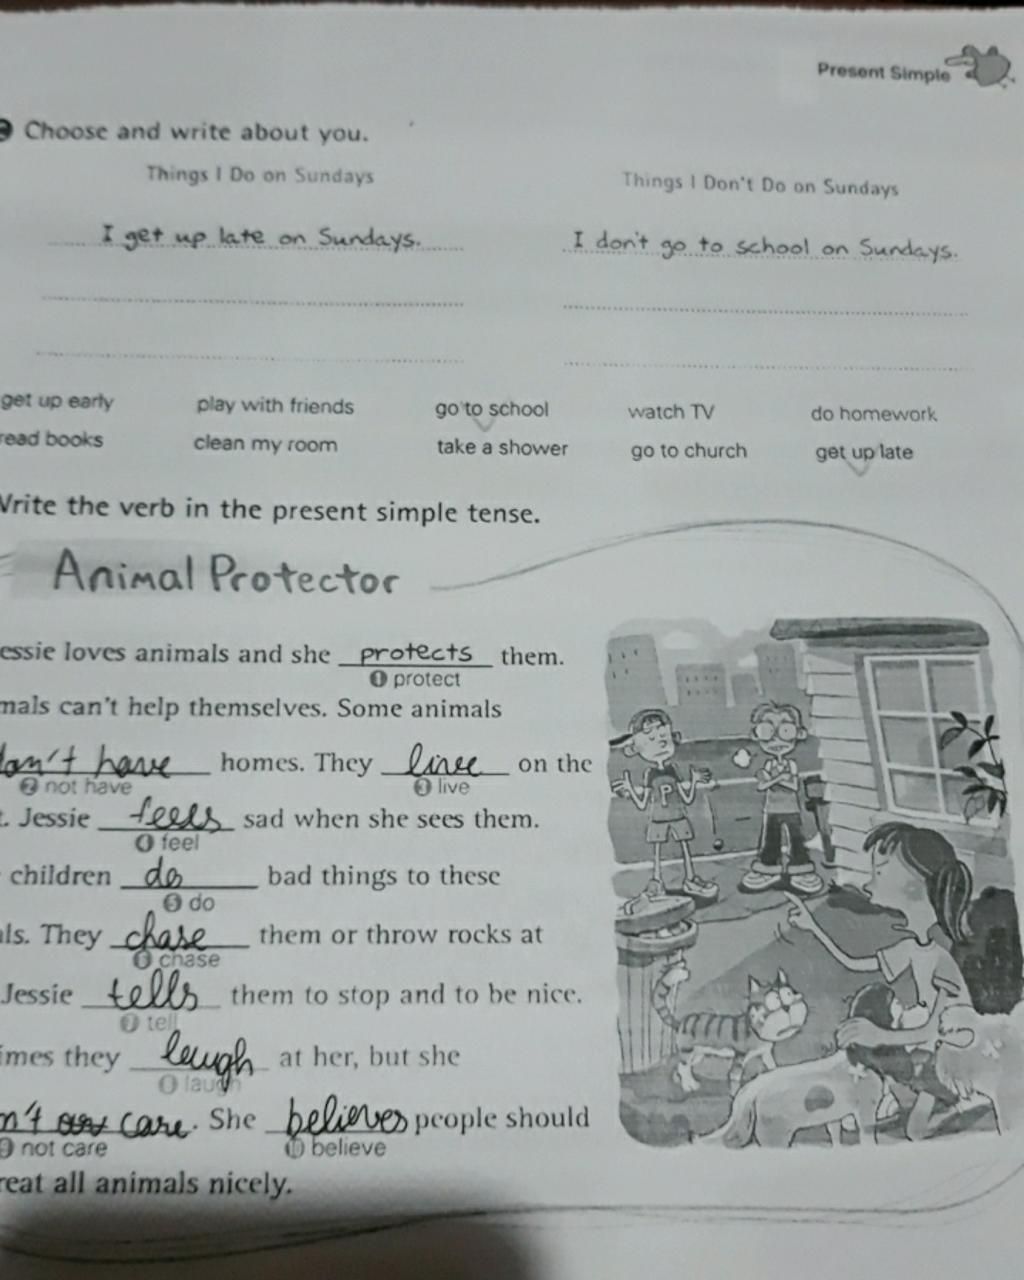 Present Simple
Choose and write about you.
Things I Do on Sundays
Things I Don't Do on Sundays
I get up late on Sundays.
I don't go to school on Sundays.
get up early play with friends go to school watch TV do homework
read books clean my room take a shower go to church get up late
Write the verb in the present simple tense.
Animal Protector
essie loves animals and she protects them.
1 protect
mals can't help themselves. Some animals
don't have homes. They live on the
2 not have 3 live
t. Jessie feels sad when she sees them.
4 feel
children do bad things to these
5 do
ls. They chase them or throw rocks at
6 chase
Jessie tells them to stop and to be nice.
7 tell
imes they laugh at her, but she
8 laugh
n't care. She believes people should
9 not care 10 believe
reat all animals nicely.
P